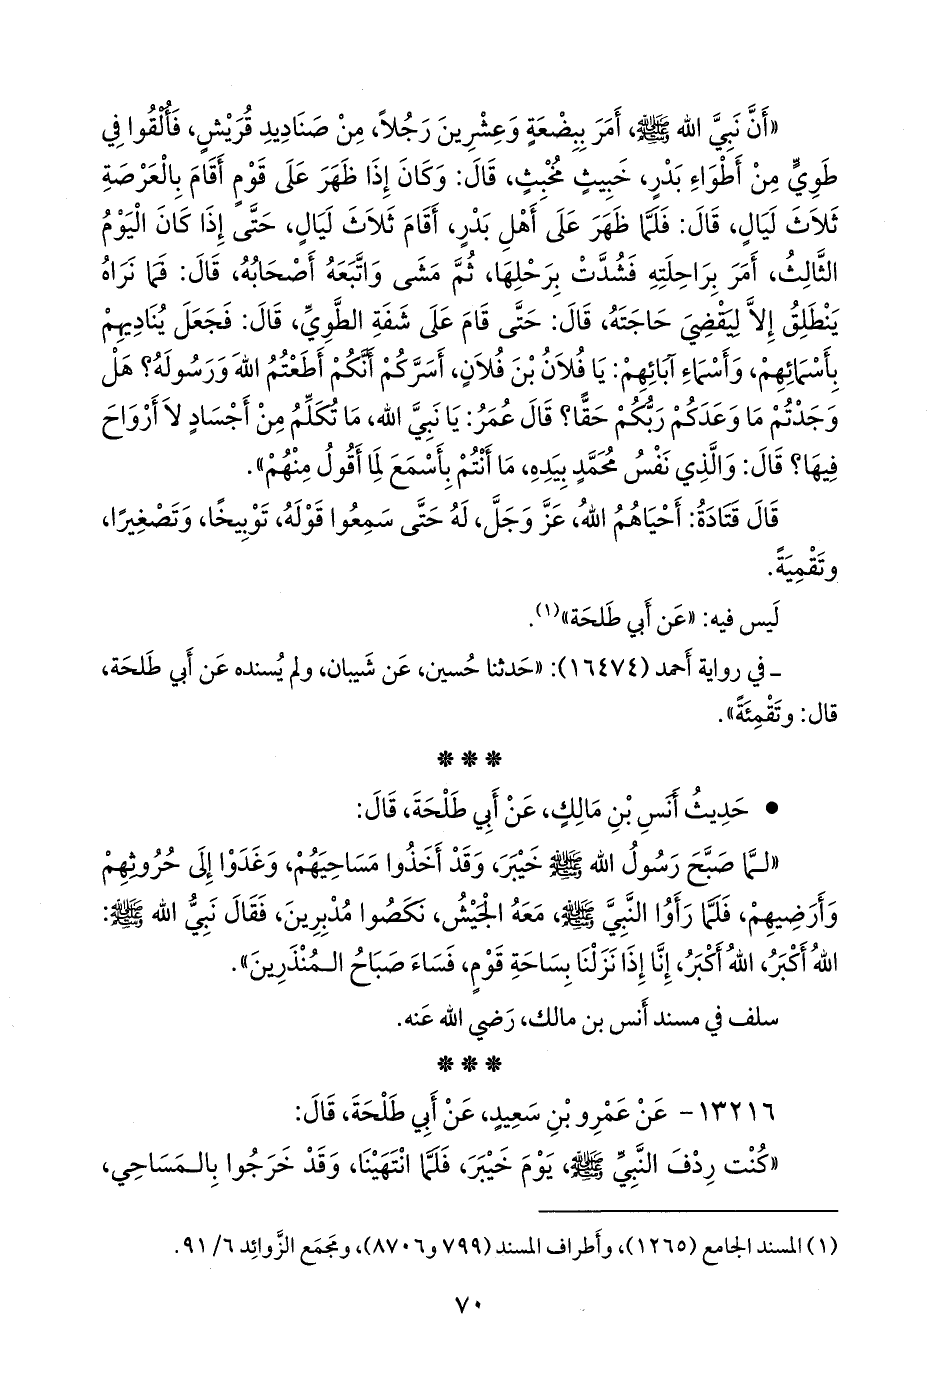 «أَنَّ نَبِيَّ الله ﷺ، أَمَرَ بِبِضْعَةٍ وَعِشْرِينَ رَجُلاً، مِنْ صَنَادِيدِ قُرَيْشٍ، فَأُلْقُوا فِي
طَوِيٍّ مِنْ أَطْوَاءِ بَدْرٍ، خَبِيثٍ مُخْبِثٍ، قَالَ: وَكَانَ إِذَا ظَهَرَ عَلَى قَوْمٍ أَقَامَ بِالْعَرْصَةِ
ثَلاَثَ لَيَالٍ، قَالَ: فَلَمَّا ظَهَرَ عَلَى أَهْلِ بَدْرٍ، أَقَامَ ثَلاَثَ لَيَالٍ، حَتَّى إِذَا كَانَ الْيَوْمُ
الثَّالِثُ، أَمَرَ بِرَاحِلَتِهِ فَشُدَّتْ بِرَحْلِهَا، ثُمَّ مَشَى وَاتَّبَعَهُ أَصْحَابُهُ، قَالَ: فَمَا نَرَاهُ
يَنْطَلِقُ إِلاَّ لِيَقْضِيَ حَاجَتَهُ، قَالَ: حَتَّى قَامَ عَلَى شَفَةِ الطَّوِيِّ، قَالَ: فَجَعَلَ يُنَادِيهِمْ
بِأَسْمَائِهِمْ، وَأَسْمَاءِ آبَائِهِمْ: يَا فُلاَنُ بْنَ فُلاَنٍ، أَسَرَّكُمْ أَنَّكُمْ أَطَعْتُمُ اللهَ وَرَسُولَهُ؟ هَلْ
وَجَدْتُمْ مَا وَعَدَكُمْ رَبُّكُمْ حَقًّا؟ قَالَ عُمَرُ: يَا نَبِيَّ الله، مَا تُكَلِّمُ مِنْ أَجْسَادٍ لاَ أَرْوَاحَ
فِيهَا؟ قَالَ: وَالَّذِي نَفْسُ مُحَمَّدٍ بِيَدِهِ، مَا أَنْتُمْ بِأَسْمَعَ لِمَا أَقُولُ مِنْهُمْ».
قَالَ قَتَادَةُ: أَحْيَاهُمُ اللهُ، عَزَّ وَجَلَّ، لَهُ حَتَّى سَمِعُوا قَوْلَهُ، تَوْبِيخًا، وَتَصْغِيرًا،
وتَقْمِيَةً.
لَيس فيه: «عَن أَبي طَلحَة»(١).
ـ في رواية أحمد (١٦٤٧٤): «حَدثنا حُسين، عَن شَيبان، ولم يُسنده عَن أَبي طَلحَة،
قال: وتَقْمِئَةً».
* * *
• حَدِيثُ أَنَسِ بْنِ مَالِكٍ، عَنْ أَبِي طَلْحَةَ، قَالَ:
«لـمَّا صَبَّحَ رَسُولُ الله ﷺ خَيْبَرَ، وَقَدْ أَخَذُوا مَسَاحِيَهُمْ، وَغَدَوْا إِلَى حُرُوثِهِمْ
وَأَرَضِيهِمْ، فَلَمَّا رَأَوُا النَّبِيَّ ﷺ، مَعَهُ الْجَيْشُ، نَكَصُوا مُدْبِرِينَ، فَقَالَ نَبِيُّ الله ﷺ:
اللهُ أَكْبَرُ، اللهُ أَكْبَرُ، إِنَّا إِذَا نَزَلْنَا بِسَاحَةِ قَوْمٍ، فَسَاءَ صَبَاحُ الـمُنْذَرِينَ».
سلف في مسند أَنس بن مالك، رَضي الله عَنه.
* * *
١٣٢١٦- عَنْ عَمْرِو بْنِ سَعِيدٍ، عَنْ أَبِي طَلْحَةَ، قَالَ:
«كُنْت رِدْفَ النَّبِيِّ ﷺ، يَوْمَ خَيْبَرَ، فَلَمَّا انْتَهَيْنَا، وَقَدْ خَرَجُوا بِالـمَسَاحِي،
(١) المسند الجامع (١٢٦٥)، وأَطراف المسند (٧٩٩ و٨٧٠٦)، ومَجمَع الزَّوائِد ٦/ ٩١.
٧٠